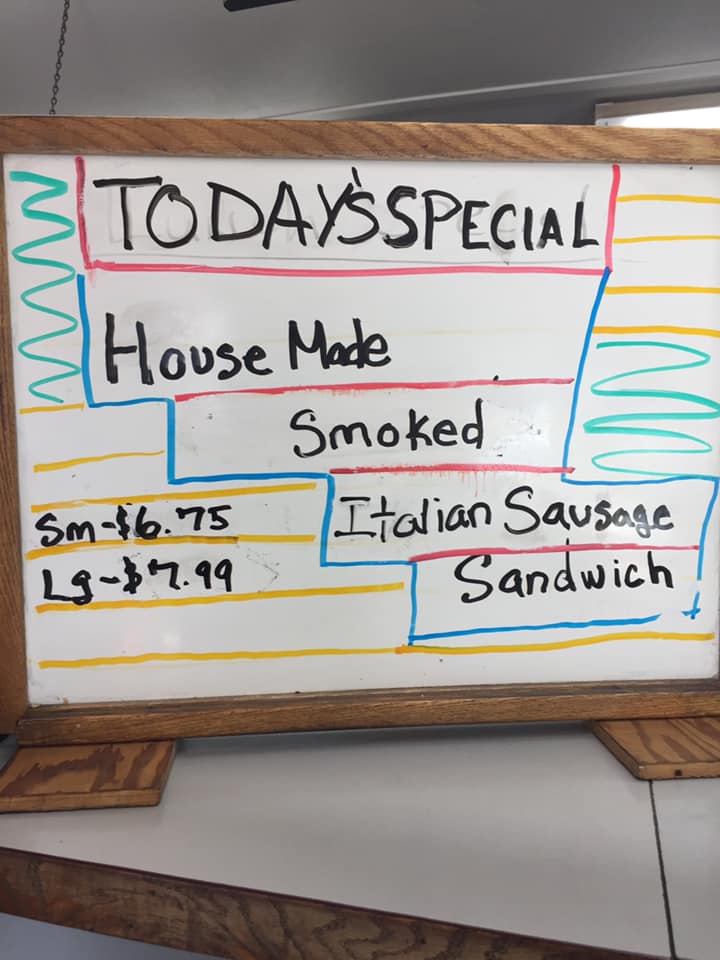 TODAY'S SPECIAL
House Made
Smoked
Italian Sausage
Sandwich
Sm-$6.75
Lg-$7.99